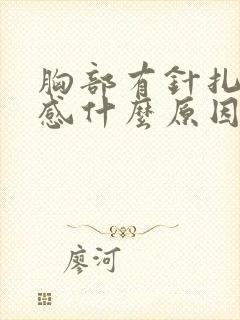 胸部有針扎
感什麼原因
廖河